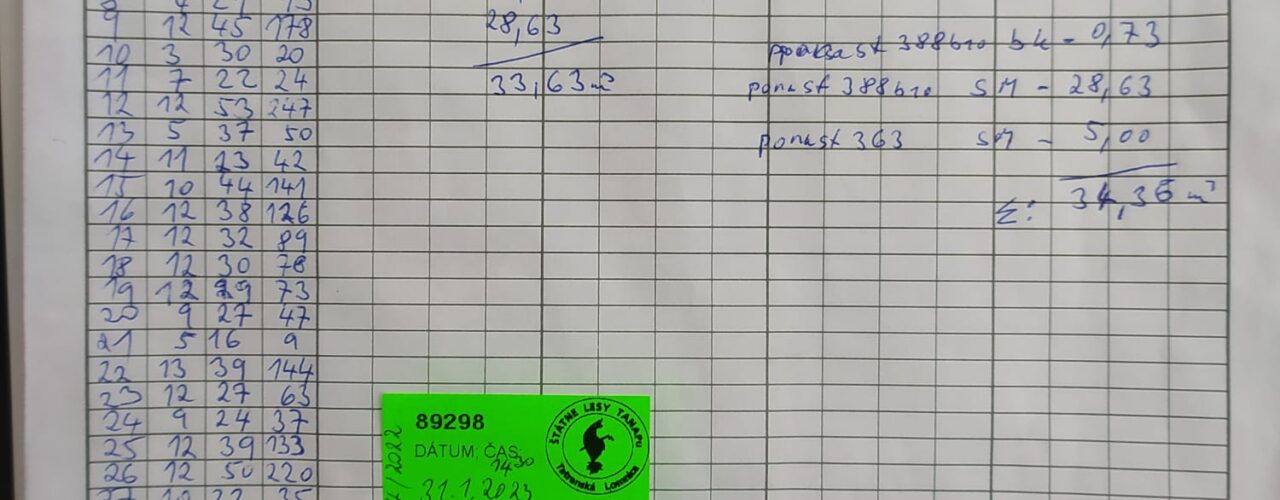 9 12 45 178
10 3 30 20
11 7 22 24
12 12 53 247
13 5 37 50
14 11 23 42
15 10 44 141
16 12 38 126
17 12 32 89
18 12 30 78
19 12 29 73
20 9 27 47
21 5 16 9
22 13 39 144
23 12 27 63
24 9 24 37
25 12 39 133
26 12 50 220
28,63
33,63 m³
388b10 bk - 0,73
porast 388b10 SM - 28,63
porast 363 SM - 5,00
Σ: 34,36 m³
89298
DÁTUM, ČAS
14 30
31.1.2023
/2022
ŠTÁTNE LESY TANAPu
Tatranská Lomnica